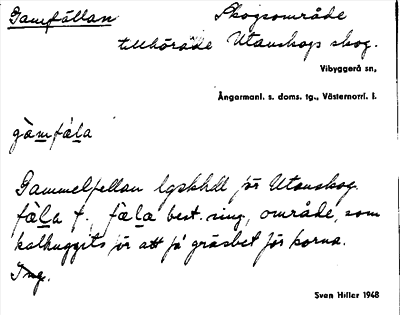 Gamfällan
Skogsområde
tillhörade Utanskogs skog.
Vibyggerå sn,
Ångermanl. s. doms. tg., Västernorrl. l.
gàmfä̀la
Gammelfellan lgskhdl för Utanskog.
fä̀la f., fä̀la best. sing, område, som
kalhuggits för att få gräsbet för korna.
Ing.
Sven Hiller 1948